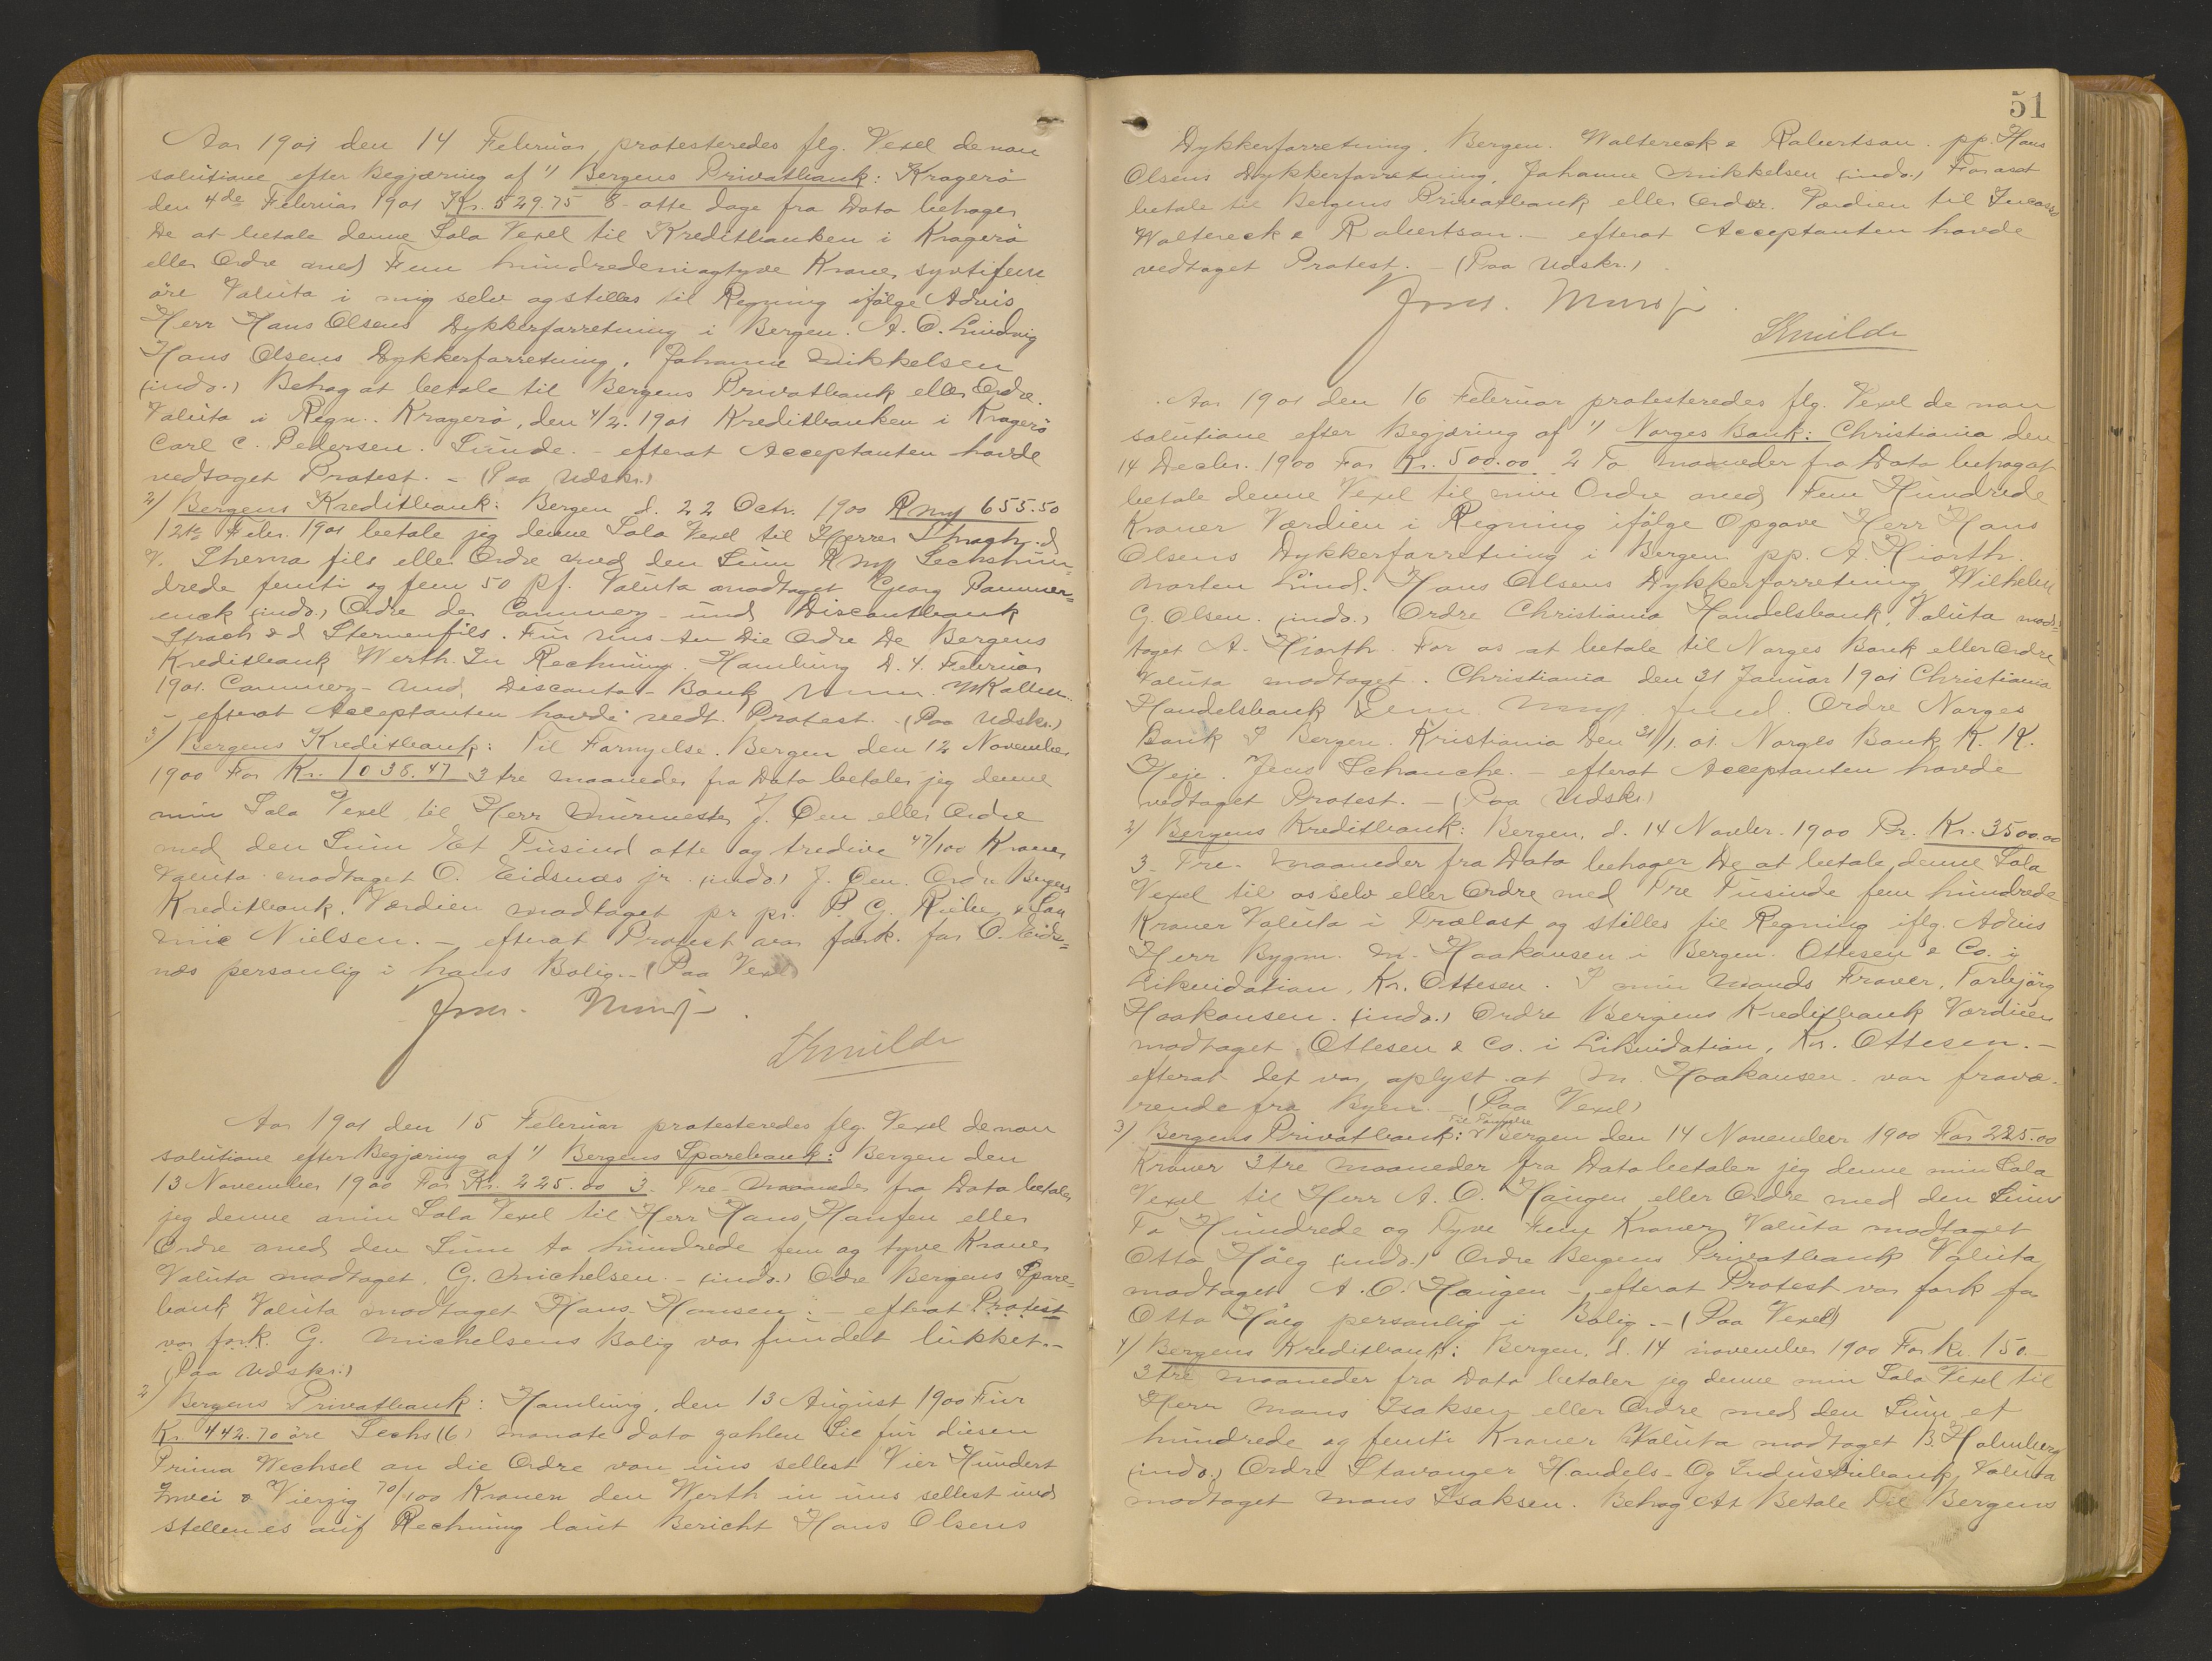 Aar 1901 den 14 Februar protesteredes flg. Vexel de non
solutione efter Begjæring af 1) Bergens Privatbank: Kragerö
den 4de Februar 1901 Kr. 529.75 8 - otte dage fra Dato behager
De at betale denne Sola Vexel til Kreditbanken i Kragerö
eller Ordre med Fem hundredeniogtyve Kroner syvtifem
öre Valuta i mig selv og stilles til Regning ifölge Advis
Herr Hans Olsens Dykkerforretning i Bergen. A. O. Lindvig
Hans Olsens Dykkerforretning, Johanne Mikkelsen
(indo.) Behag at betale til Bergens Privatbank eller Ordre.
Valuta i Regn. Kragerö, den 4/2. 1901 Kreditbanken i Kragerö
Carl C. Pedersen. Lunde. - efterat Acceptanten havde
vedtaget Protest. - (Paa Udskr.)
2) Bergens Kreditbank: Bergen d. 22 Octr. 1900 Rmp 655.50
12te Febr. 1901 betale jeg denne Sola Vexel til Herrer
fils eller Ordre med den Sum Rmp Sechshun-
drede femti og fem 50 pf. Valuta modtaget Georg Pommer-
enck (indo.) Ordre der Commerz- und Discontbank
Strach & d Sternenfils. Für uns an Die Ordre De Bergens
Kreditbank Werth In Rechnung. Hamburg d. 4. Februar
1901. Commerz- und Disconto-Bank
- efterat Acceptanten havde vedt. Protest. - (Paa Udskr.)
3) Bergens Kreditbank: Til Fornyelse. Bergen den 12 November
1900 For Kr. 1038.47 3 tre maaneder fra Dato betaler jeg denne
min Sola Vexel til Herr Murmester J. Öen eller Ordre
med den Sum Et Tusind otte og tredive 47/100 Kroner
Valuta modtaget O. Eidsnæs jr. (indo) J. Öen. Ordre Bergens
Kreditbank. Værdien modtaget pr pr. P. G. Rieber & Søn
Nielsen. - efterat Protest var fork. for O. Eids-
næs personlig i hans Bolig. - (Paa Vexel)
Aar 1901 den 15 Februar protesteredes flg. Vexel de non
solutione efter Begjæring af 1) Bergens Sparebank: Bergen den
13 November 1900 For Kr. 225.00 3. Tre maaneder fra Dato betaler
jeg denne min Sola Vexel til Herr Hans Hansen eller
Ordre med den Sum to hundrede fem og tyve Kroner
Valuta modtaget. G. Michelsen. - (indo.) Ordre Bergens Spare-
bank Valuta modtaget Hans Hansen. - efterat Protest
var fork. G. Michelsens Bolig var fundet lukket. -
(Paa Udskr.)
2) Bergens Privatbank: Hamburg, den 13 August 1900 Für
Kr. 442.70 öre Sechs (6) monate dato zahlen Sie für diesen
Prima Wechsel an die Ordre von uns selbst Vier Hundert
Zwei & Vierzig 70/100 Kronen den Werth in uns selbst und
stellen es auf Rechnung laut Bericht Hans Olsens
51
Dykkerforretning. Bergen. Woltereck & Robertson. pp. Hans
Olsens Dykkerforretning, Johanne Mikkelsen (indo.) For os at
betale til Bergens Privatbank eller Ordre. Værdien til Incasso
Woltereck & Robertson. - efterat Acceptanten havde
vedtaget Protest. - (Paa Udskr.)
Aar 1901 den 16 Februar protesteredes flg. Vexel de non
solutione efter Begjæring af 1) Norges Bank: Christiania den
14 Decbr. 1900 For Kr. 500.00 2 To maaneder fra Dato behag at
betale denne Vexel til min Ordre med Fem Hundrede
Kroner Værdien i Regning ifölge Opgave Herr Hans
Olsens Dykkerforretning i Bergen pp. A. Hiorth
Morten Lind. Hans Olsens Dykkerforretning Wilhelm
G. Olsen. (indo.) Ordre Christiania Handelsbank, Valuta mod-
taget A. Hiorth. For os at betale til Norges Bank eller Ordre
Valuta modtaget. Christiania den 31 Januar 1901 Christiania
Handelsbank Ordre Norges
Bank I Bergen. Kristiania Den 31/1. 01. Norges Bank K. K.
Heje. Jens Schanche. - efterat Acceptanten havde
vedtaget Protest. - (Paa Udskr)
2) Bergens Kreditbank: Bergen, d. 14 Novbr. 1900 Pr. Kr. 3500.00
3 - Tre - Maaneder fra Dato behager De at betale denne Sola
Vexel til os selv eller Ordre med Tre Tusinde fem hundrede
Kroner Valuta i Trælast og stilles til Regning iflg. Advis
Herr Bygm. M. Haakonsen i Bergen. Ottesen & Co. i
Likvidation, Kr. Ottesen. I min Mands Fravær, Torbjörg
Haakonsen. (indo.) Ordre Bergens Kreditbank Værdien
modtaget Ottesen & Co. i Likvidation, Kr. Ottesen. -
efterat det var oplyst at M. Haakonsen var fravæ-
rende fra Byen. - (Paa Vexel)
3) Bergens Privatbank: Til Fornyelse Bergen den 14 November 1900 For 225.00
Kroner 3 tre Maaneder fra Dato betaler jeg denne min Sola
Vexel til Herr A. O. Haugen eller Ordre med den Sum
To Hundrede og Tyve Fem Kroner Valuta modtaget
Otto Höeg (indo.) Ordre Bergens Privatbank Valuta
modtaget A. O. Haugen - efterat Protest var fork for
Otto Höeg personlig i Bolig. - (Paa Vexel)
4) Bergens Kreditbank: Bergen, d. 14 november 1900 For kr. 150.-
3 tre maaneder fra Dato betaler jeg denne min Sola Vexel til
Herr Mons Isaksen eller Ordre med den Sum et
hundrede og femti Kroner Valuta modtaget B. Holmberg
(indo.) Ordre Stavanger Handels- Og Industribank, Valuta
modtaget Mons Isaksen. Behag At Betale Til Bergens